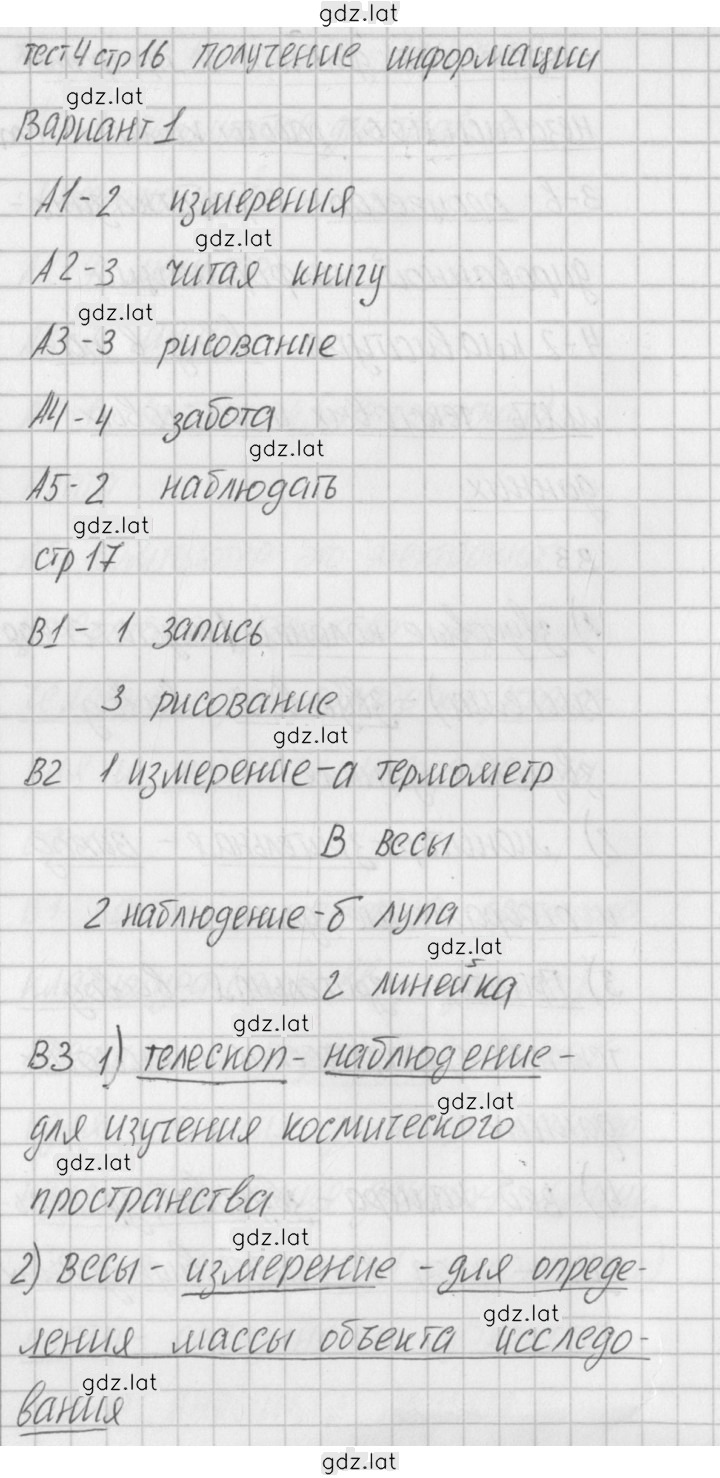 gdz.lat
тест 4 стр 16 получение информации
gdz.lat
Вариант 1
А1-2 измерения
gdz.lat
А2-3 читая книгу
gdz.lat
А3-3 рисование
А4-4 забота
gdz.lat
А5-2 наблюдать
gdz.lat
стр 17
В1- 1 запись
3 рисование
gdz.lat
В2 1 измерение-а термометр
В весы
2 наблюдение-б лупа
gdz.lat
2 линейка
gdz.lat
В3 1) телескоп- наблюдение-
gdz.lat
для изучения космического
gdz.lat
пространства
gdz.lat
2) весы- измерение - для опреде-
gdz.lat
ления массы объекта исследо-
gdz.lat
вания
gdz.lat